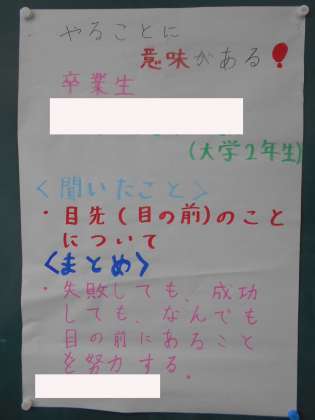 やることに
意味がある!
卒業生
(大学2年生)
<聞いたこと>
・目先(目の前)のこと
について
<まとめ>
・失敗しても、成功
しても、なんでも
目の前にあること
を努力する。